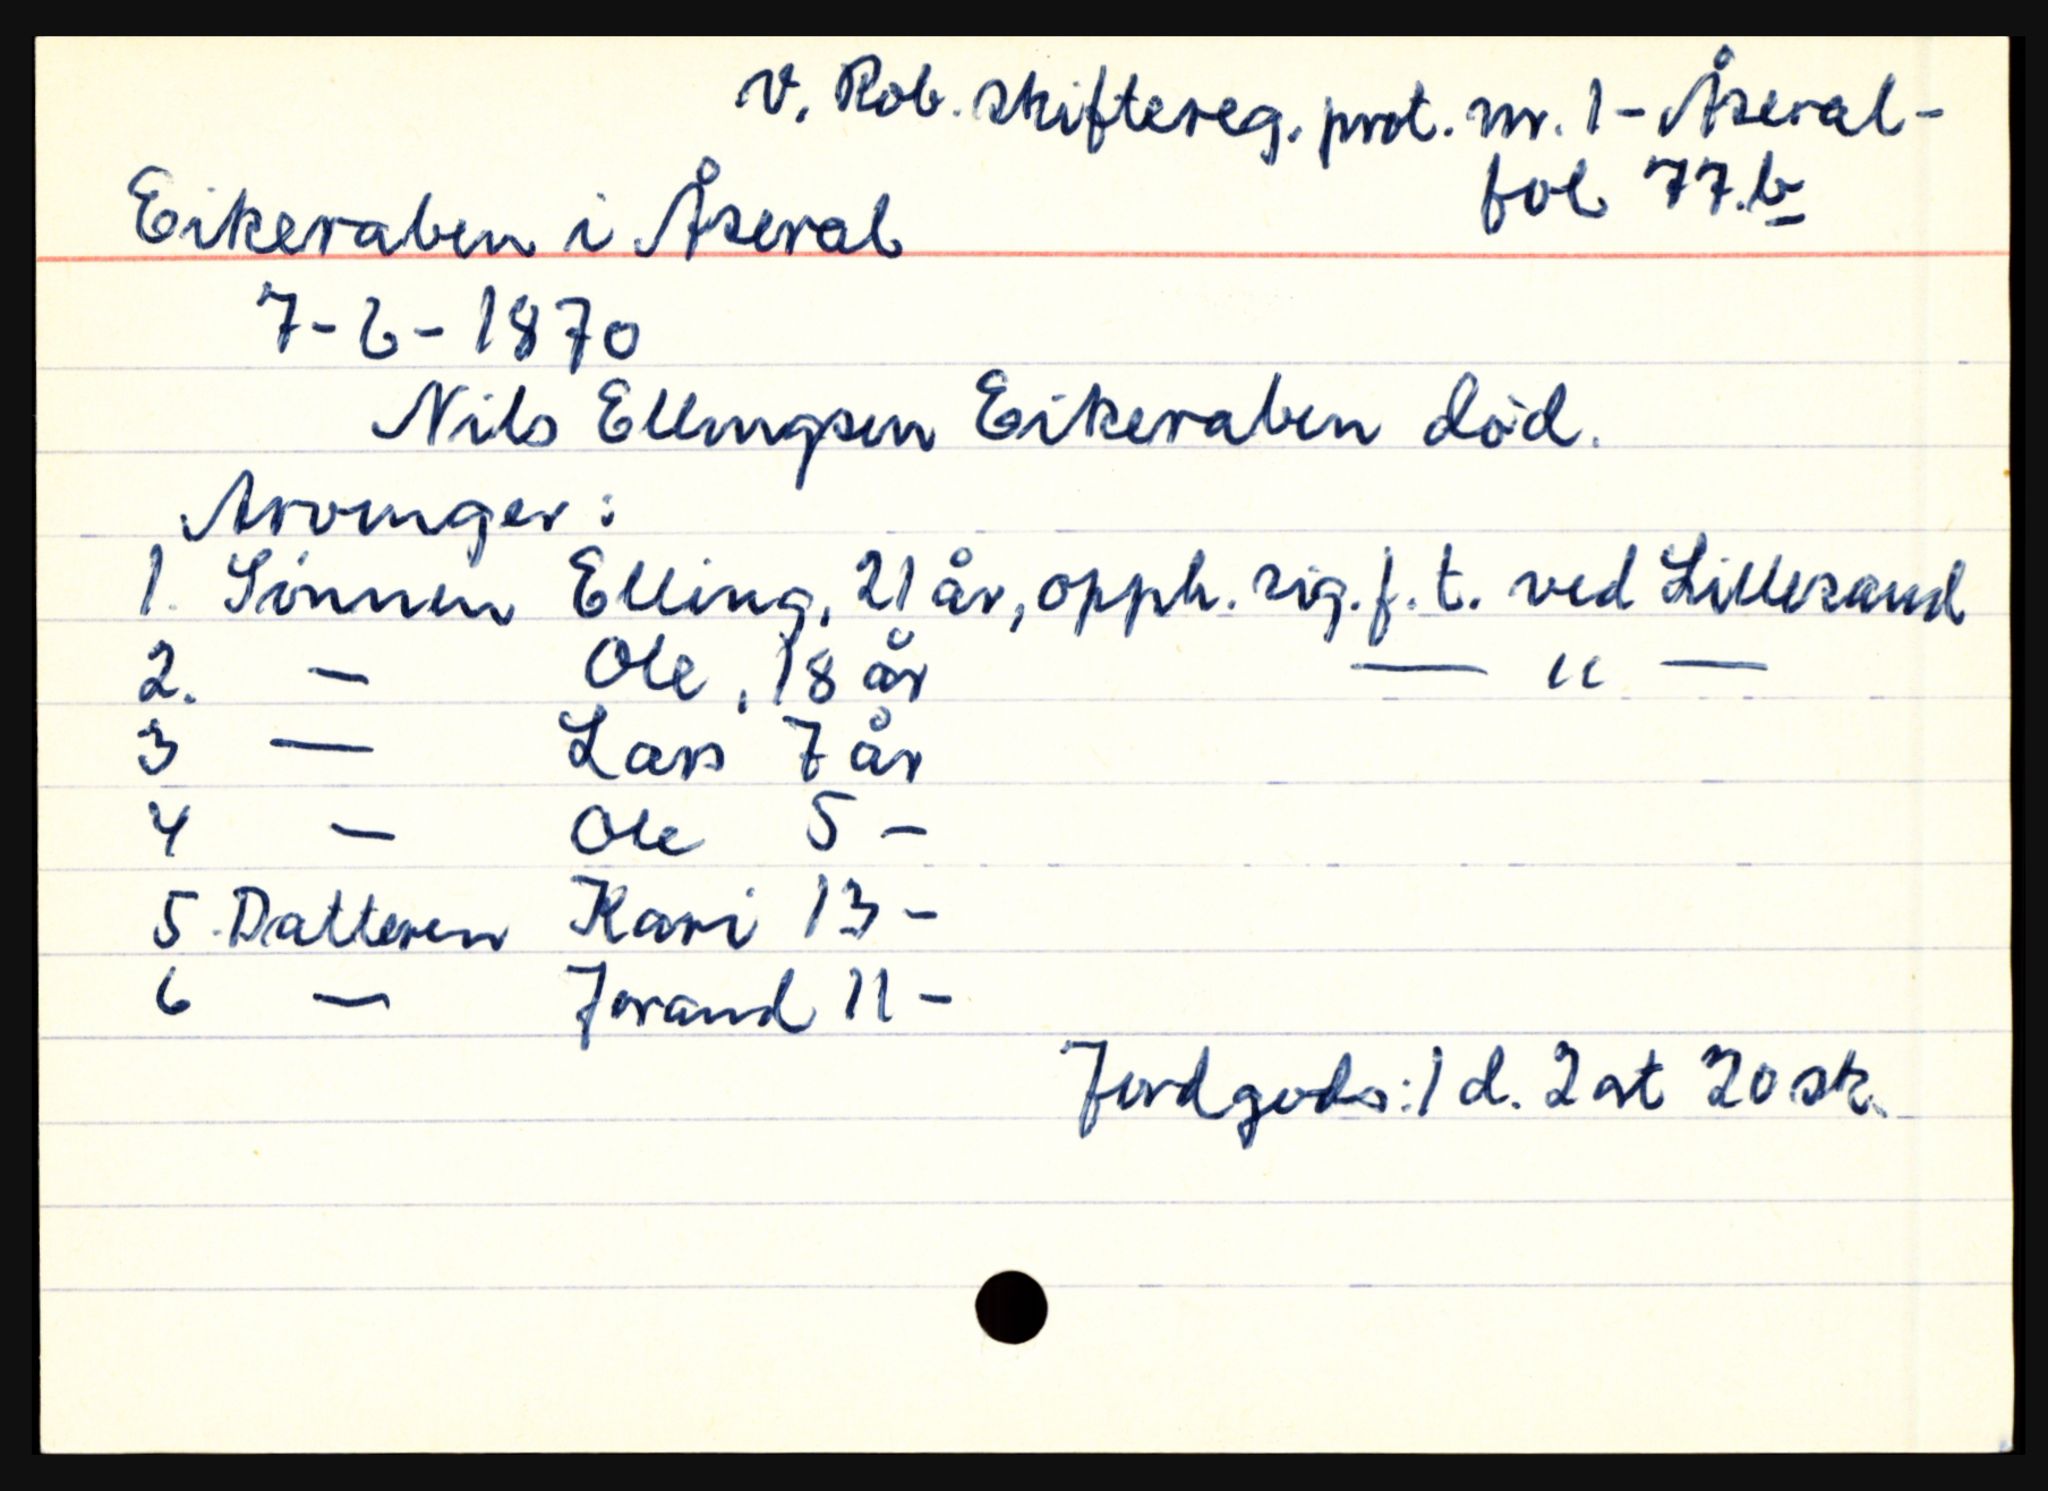 v. Rob. skiftereg. prot. nr. 1 - Åseral -
fol 77.b
Eikeraben i Åseral
7-6-1870
Nils Ellingsen Eikeraben död.
Arvinger:
1. Sönnen Elling, 21 år, opph. sig. f. t. ved Lillesand
2. — Ole, 18 år — " —
3 — Lars 7 år
4 — Ole 5 -
5. Datteren Kari 13 -
6 — Jorand 11 -
Jordgods: 1 d. 2 ort 20 sk.